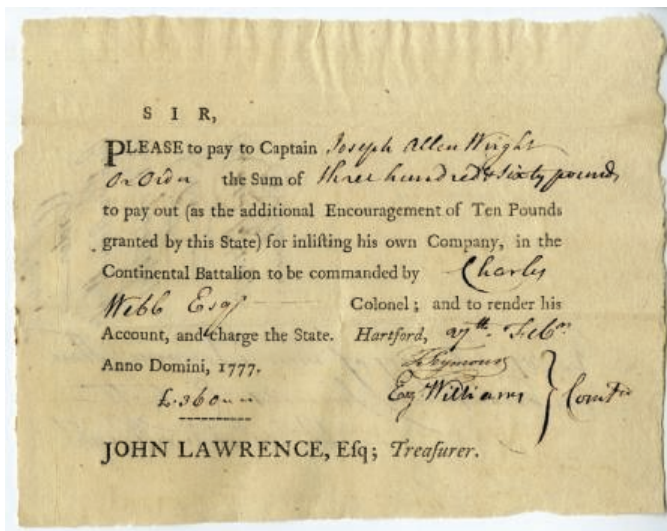 S I R,
PLEASE to pay to Captain Joseph Allen Wright
or Order the Sum of three hundred & sixty pounds
to pay out (as the additional Encouragement of Ten Pounds
granted by this State) for inlisting his own Company, in the
Continental Battalion to be commanded by Charles
Webb Esqr Colonel; and to render his
Account, and charge the State. Hartford, 27th Febr
Anno Domini, 1777.
T Seymour
£360
Ez Williams } Comtee
JOHN LAWRENCE, Esq; Treasurer.